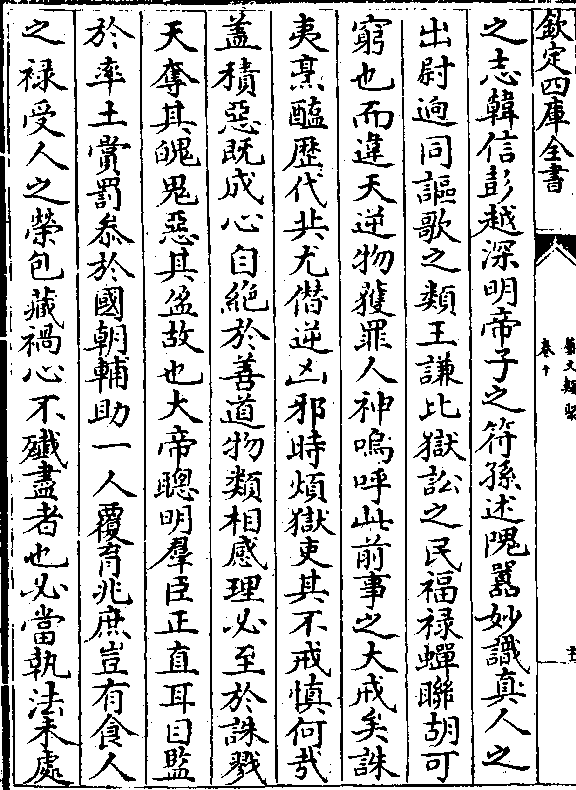 欽定四庫全書
藝文類聚
卷十
之志韓信彭越深明帝子之符孫述隗囂妙識真人之
出尉迥同謳歌之類王謙比獄訟之民福禄蟬聯胡可
窮也而違天逆物獲罪人神嗚呼此前事之大戒矣誅
夷烹醢歴代共尤僣逆凶邪時煩獄吏其不戒慎何哉
盖積惡既成心自絶於善道物類相感理必至於誅戮
天奪其魄鬼惡其盈故也大帝聰明羣臣正直耳目監
於率土賞罰叅於國朝輔助一人覆育兆庶豈有食人
之禄受人之榮包藏禍心不殲盡者也必當執法未處